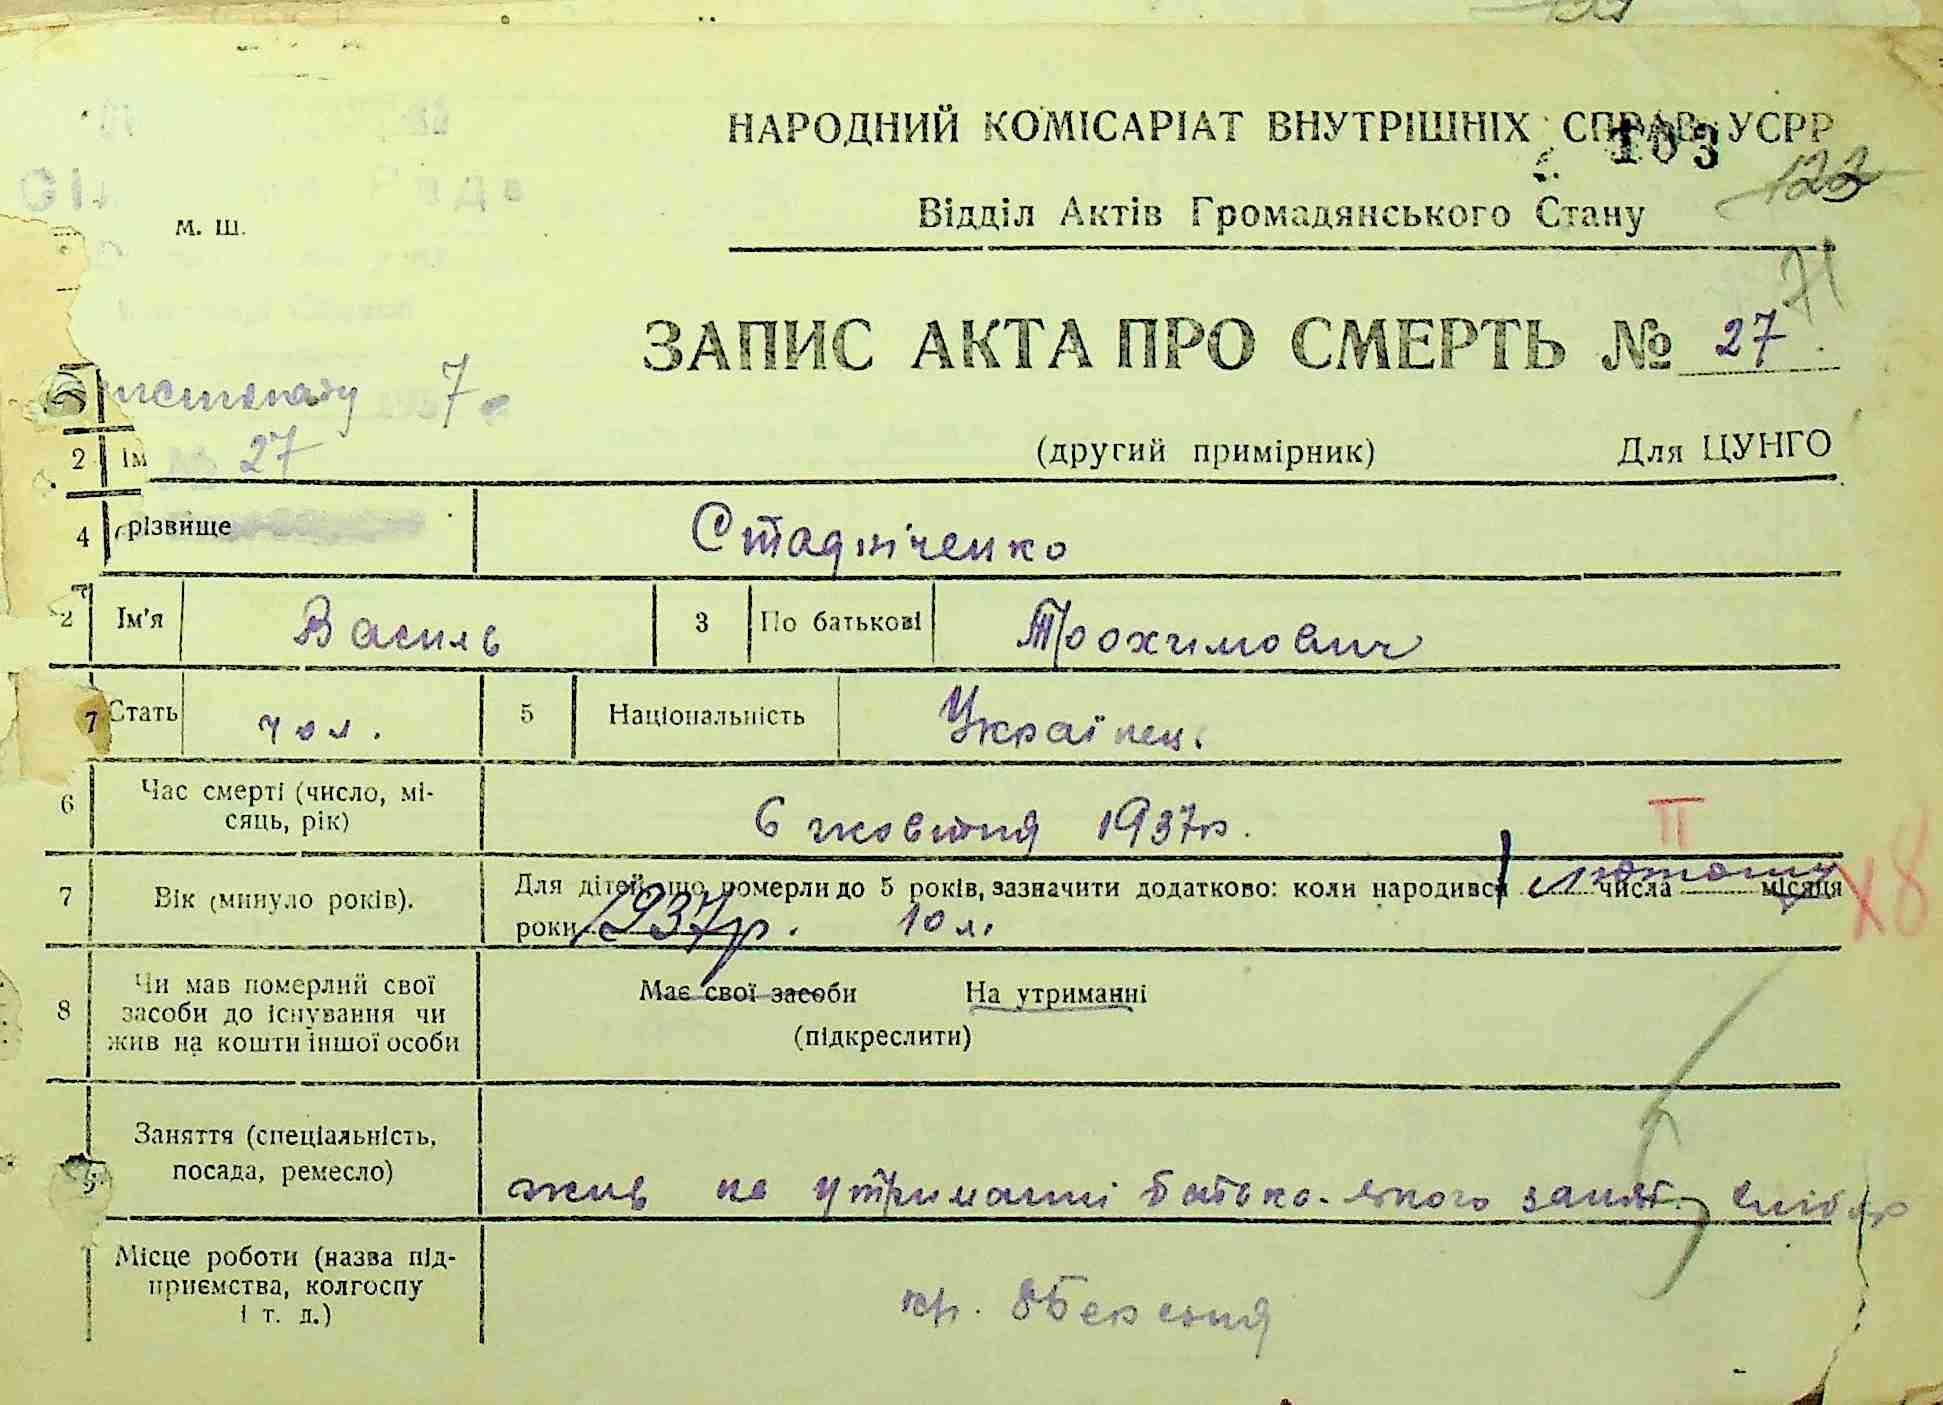 НАРОДНИЙ КОМІСАРІАТ ВНУТРІШНІХ СПРАВ УСРР
103
123
Відділ Актів Громадянського Стану
м. Ш.
71
ЗАПИС АКТА ПРО СМЕРТЬ № 27
7
2 Ім 27
(другий примірник) Для ЦУНГО
4 різвище Стадніченко
2 Ім'я Василь 3 По батькові Трохимович
7 Стать чол. 5 Національність Українец.
6 Час смерті (число, мі-
сяць, рік) 6 жовтня 1937р.
II
7 Вік (минуло років). Для дітей що померли до 5 років, зазначити додатково: коли народився 1 числа лютому місяця
роки 1937р. 10 л.
х8
8 Чи мав померлий свої
засоби до існування чи
жив на кошти іншої особи
Має свої засоби На утриманні
(підкреслити)
Заняття (спеціальність,
посада, ремесло)
жив на утриманні батька якого занят.
Місце роботи (назва під-
приємства, колгоспу
і т. д.)
кр. 8 Березня